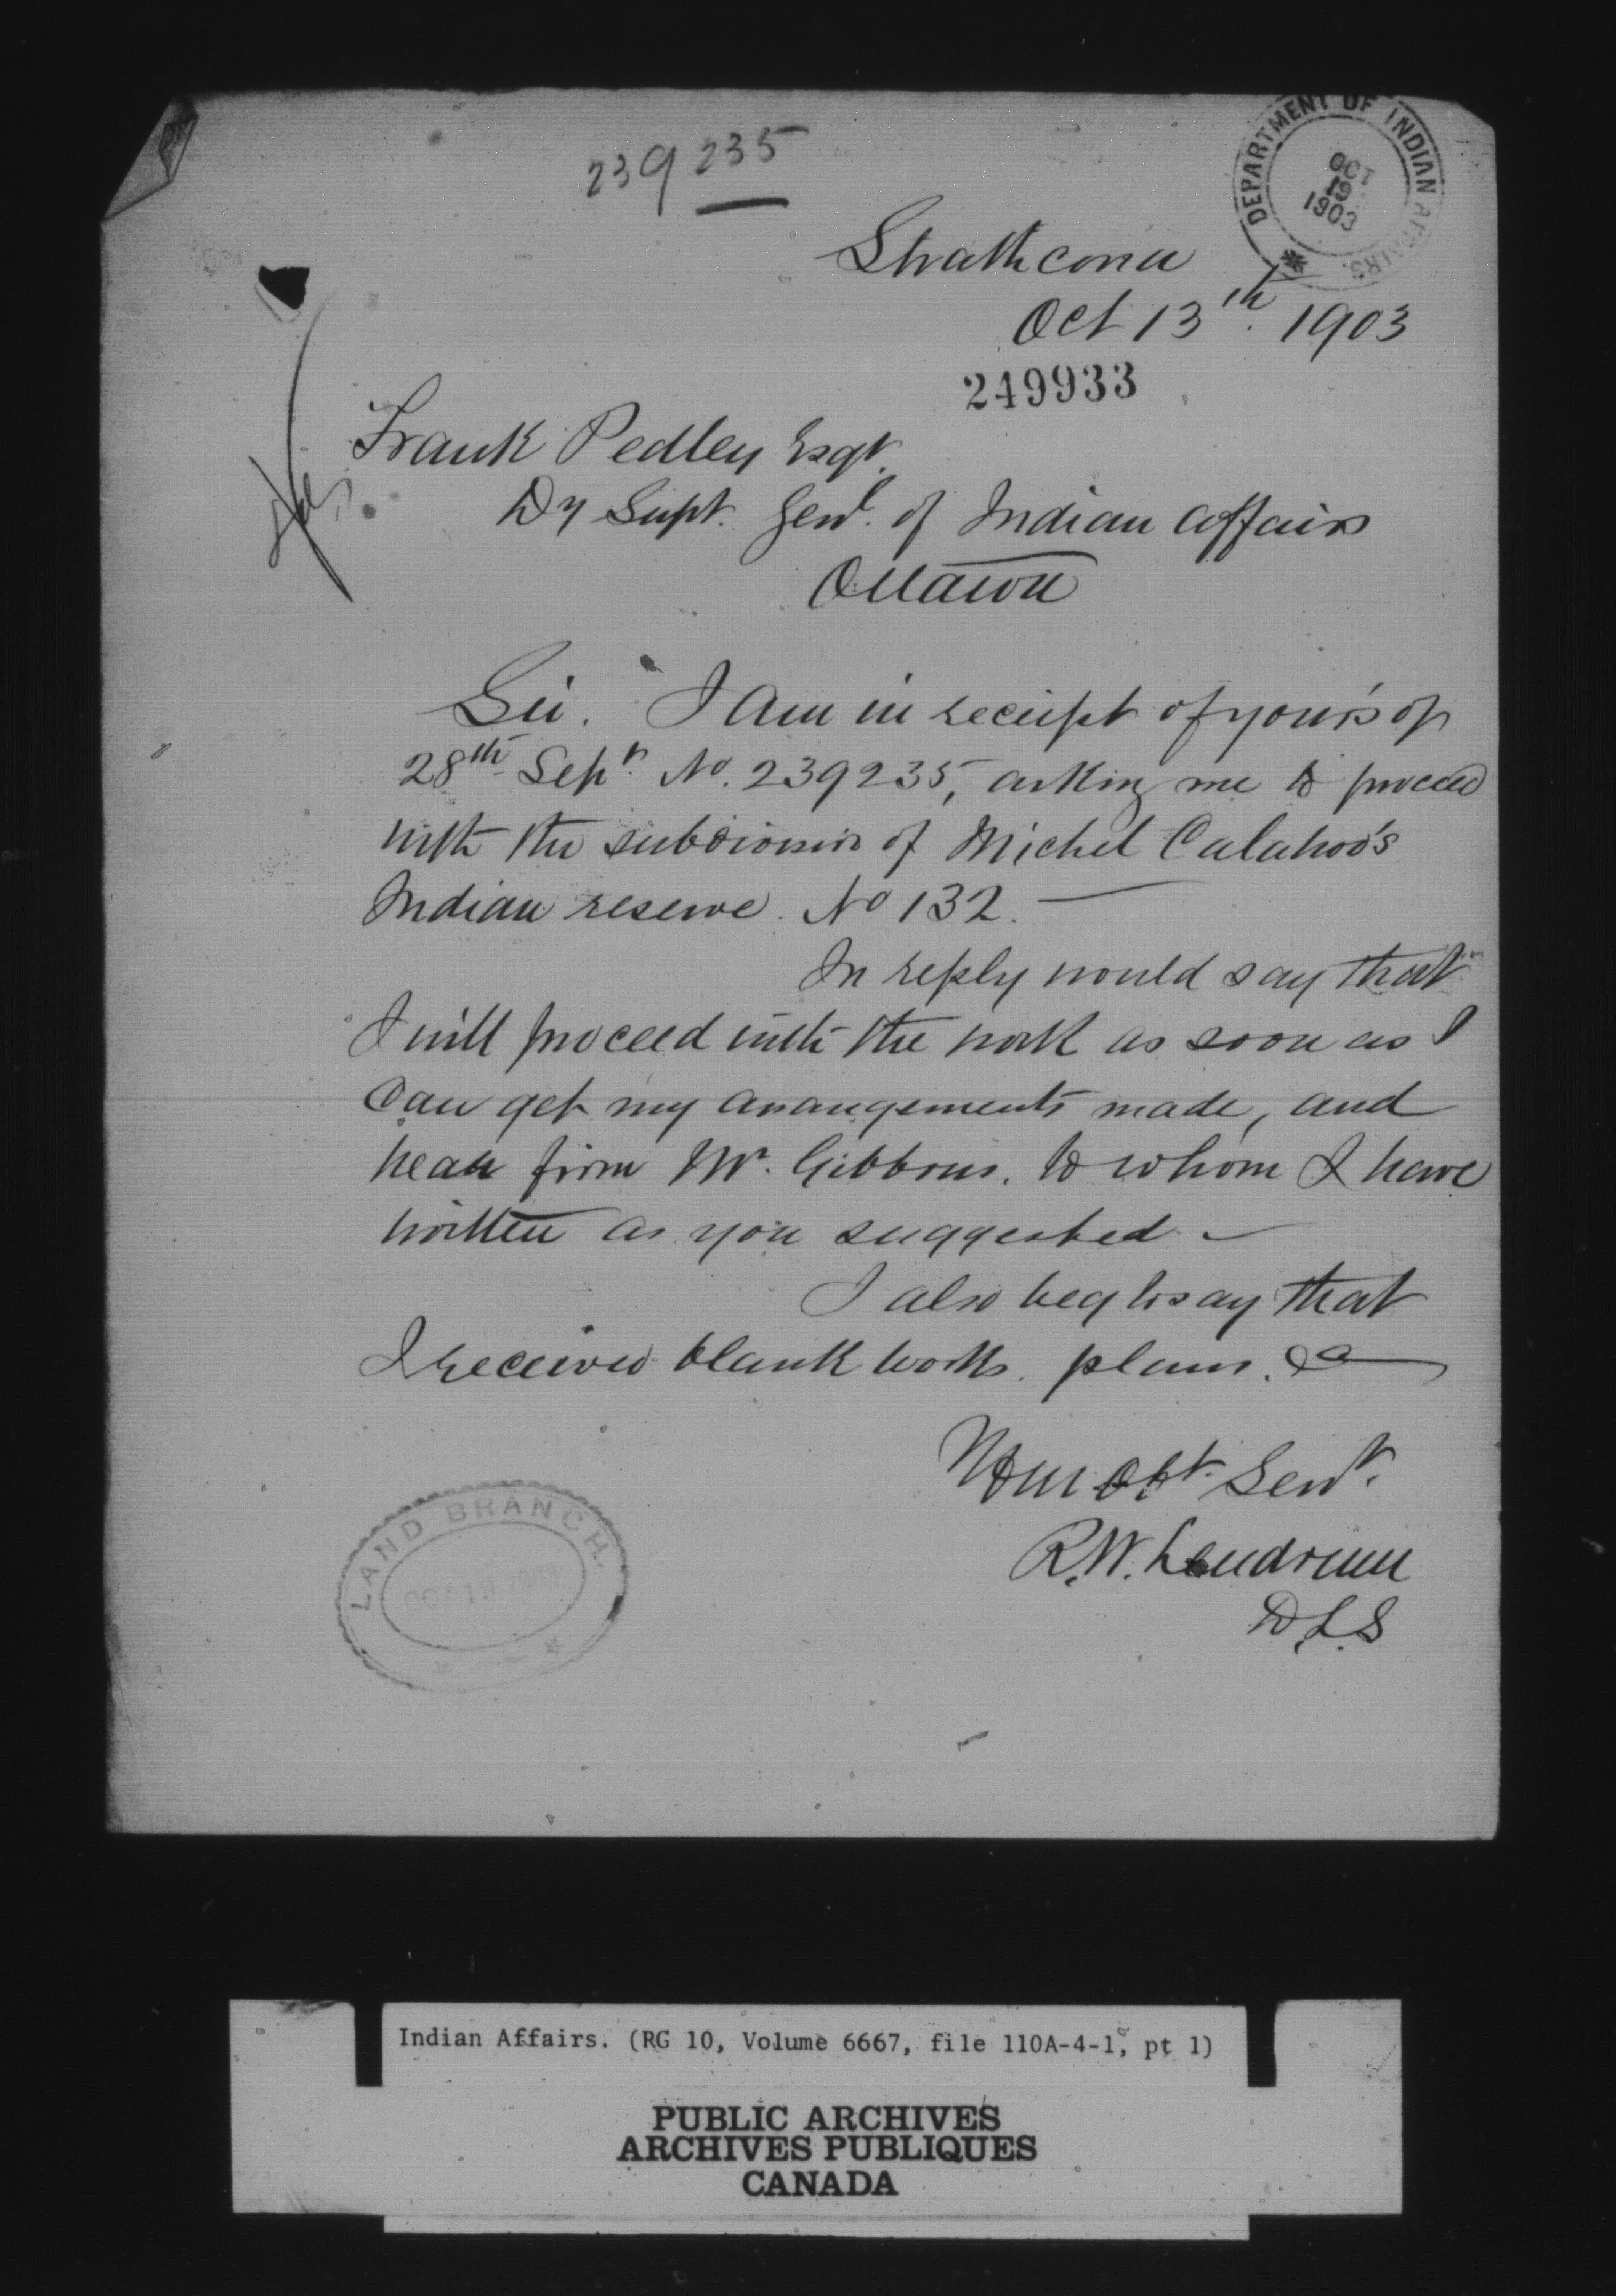 239235
DEPARTMENT OF INDIAN AFFAIRS.
OCT
19
1903
Strathcona
Oct 13th. 1903
249933
Frank Pedley Esqr.
Dy Supt. Genl. of Indian Affairs
Ottawa
Sir. I am in receipt of yours of
28th Sepr. No. 239235, asking me to proceed
with the subdivision of Michel Calahoo's
Indian reserve. No 132. —
In reply would say that
I will proceed with the work as soon as I
can get my arrangements made, and
hear from Mr. Gibbons. to whom I have
written as you suggested —
I also beg to say that
I received blank books. plans. &c
Your obt. Servt.
R.W. Lendrum
D.L.S
LAND BRANCH.
OCT 19 1903
Indian Affairs. (RG 10, Volume 6667, file 110A-4-1, pt 1)
PUBLIC ARCHIVES
ARCHIVES PUBLIQUES
CANADA